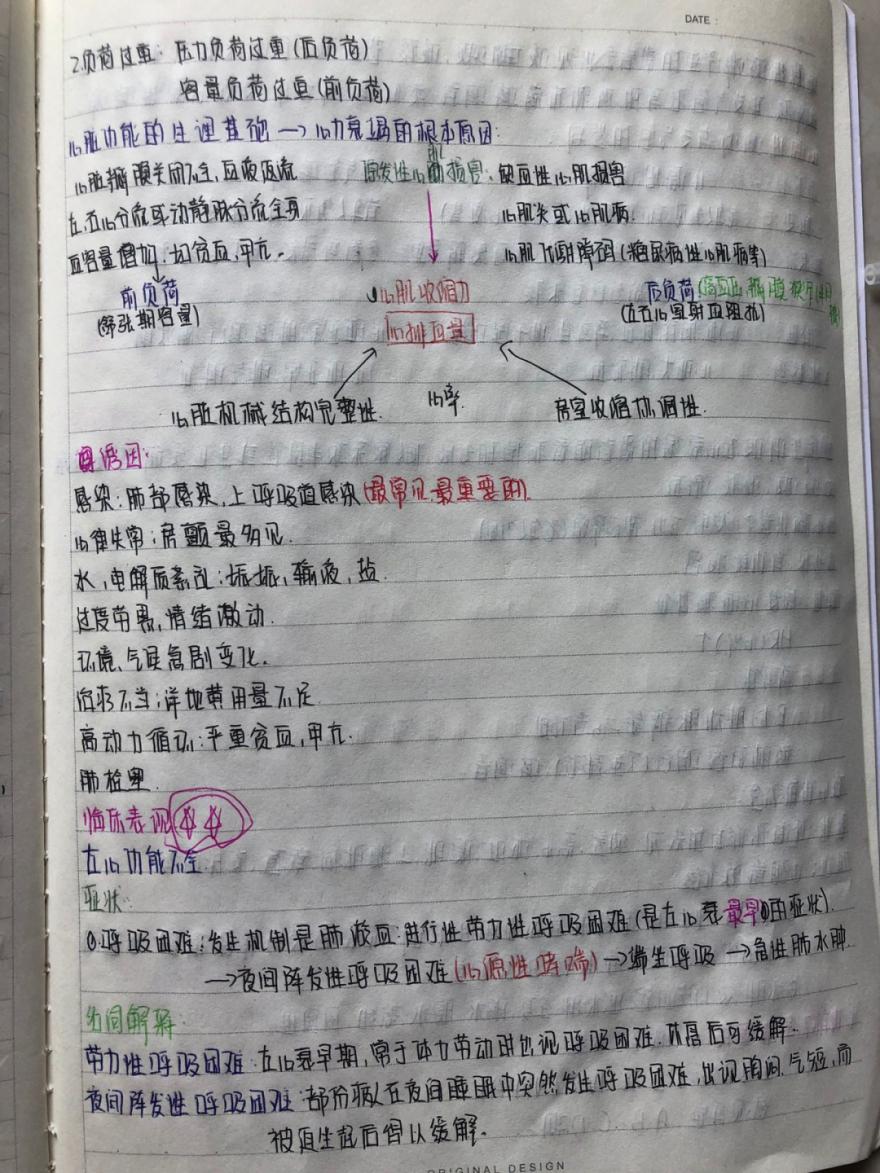 DATE:
2.负荷过重：压力负荷过重(后负荷)
容量负荷过重(前负荷)
心脏功能的生理基础→心力衰竭的根本原因：
心脏瓣膜关闭不全，血液返流 原发性心肌损害：缺血性心肌损害
左，右心分流或动静脉分流全身 心肌炎或心肌病
血容量增加：如贫血，甲亢。 心肌代谢障碍(糖尿病性心肌病等)
前负荷 心肌收缩力 后负荷(高血压,瓣膜狭窄
(舒张期容量) 心排血量 (左右心室射血阻抗)
心脏机械结构完整性. 心率. 房室收缩协调性.
诱因：
感染：肺部感染，上呼吸道感染(最常见,最重要的).
心律失常：房颤最多见.
水，电解质紊乱： 输液，盐.
过度劳累，情绪激动.
环境、气候急剧变化.
治疗不当：洋地黄用量不足.
高动力循环：严重贫血，甲亢.
肺栓塞.
临床表现
左心功能不全.
症状：
①呼吸困难：发生机制是肺淤血：进行性劳力性呼吸困难(是左心衰最早的症状).
→夜间阵发性呼吸困难(心原性哮喘)→端坐呼吸→急性肺水肿.
名词解释.
劳力性呼吸困难：左心衰早期，常于体力劳动时出现呼吸困难.休息后可缓解.
夜间阵发性呼吸困难：部份病人在夜间睡眠中突然发生呼吸困难，出现胸闷,气短,而
被迫坐起后得以缓解.
ORIGINAL DESIGN